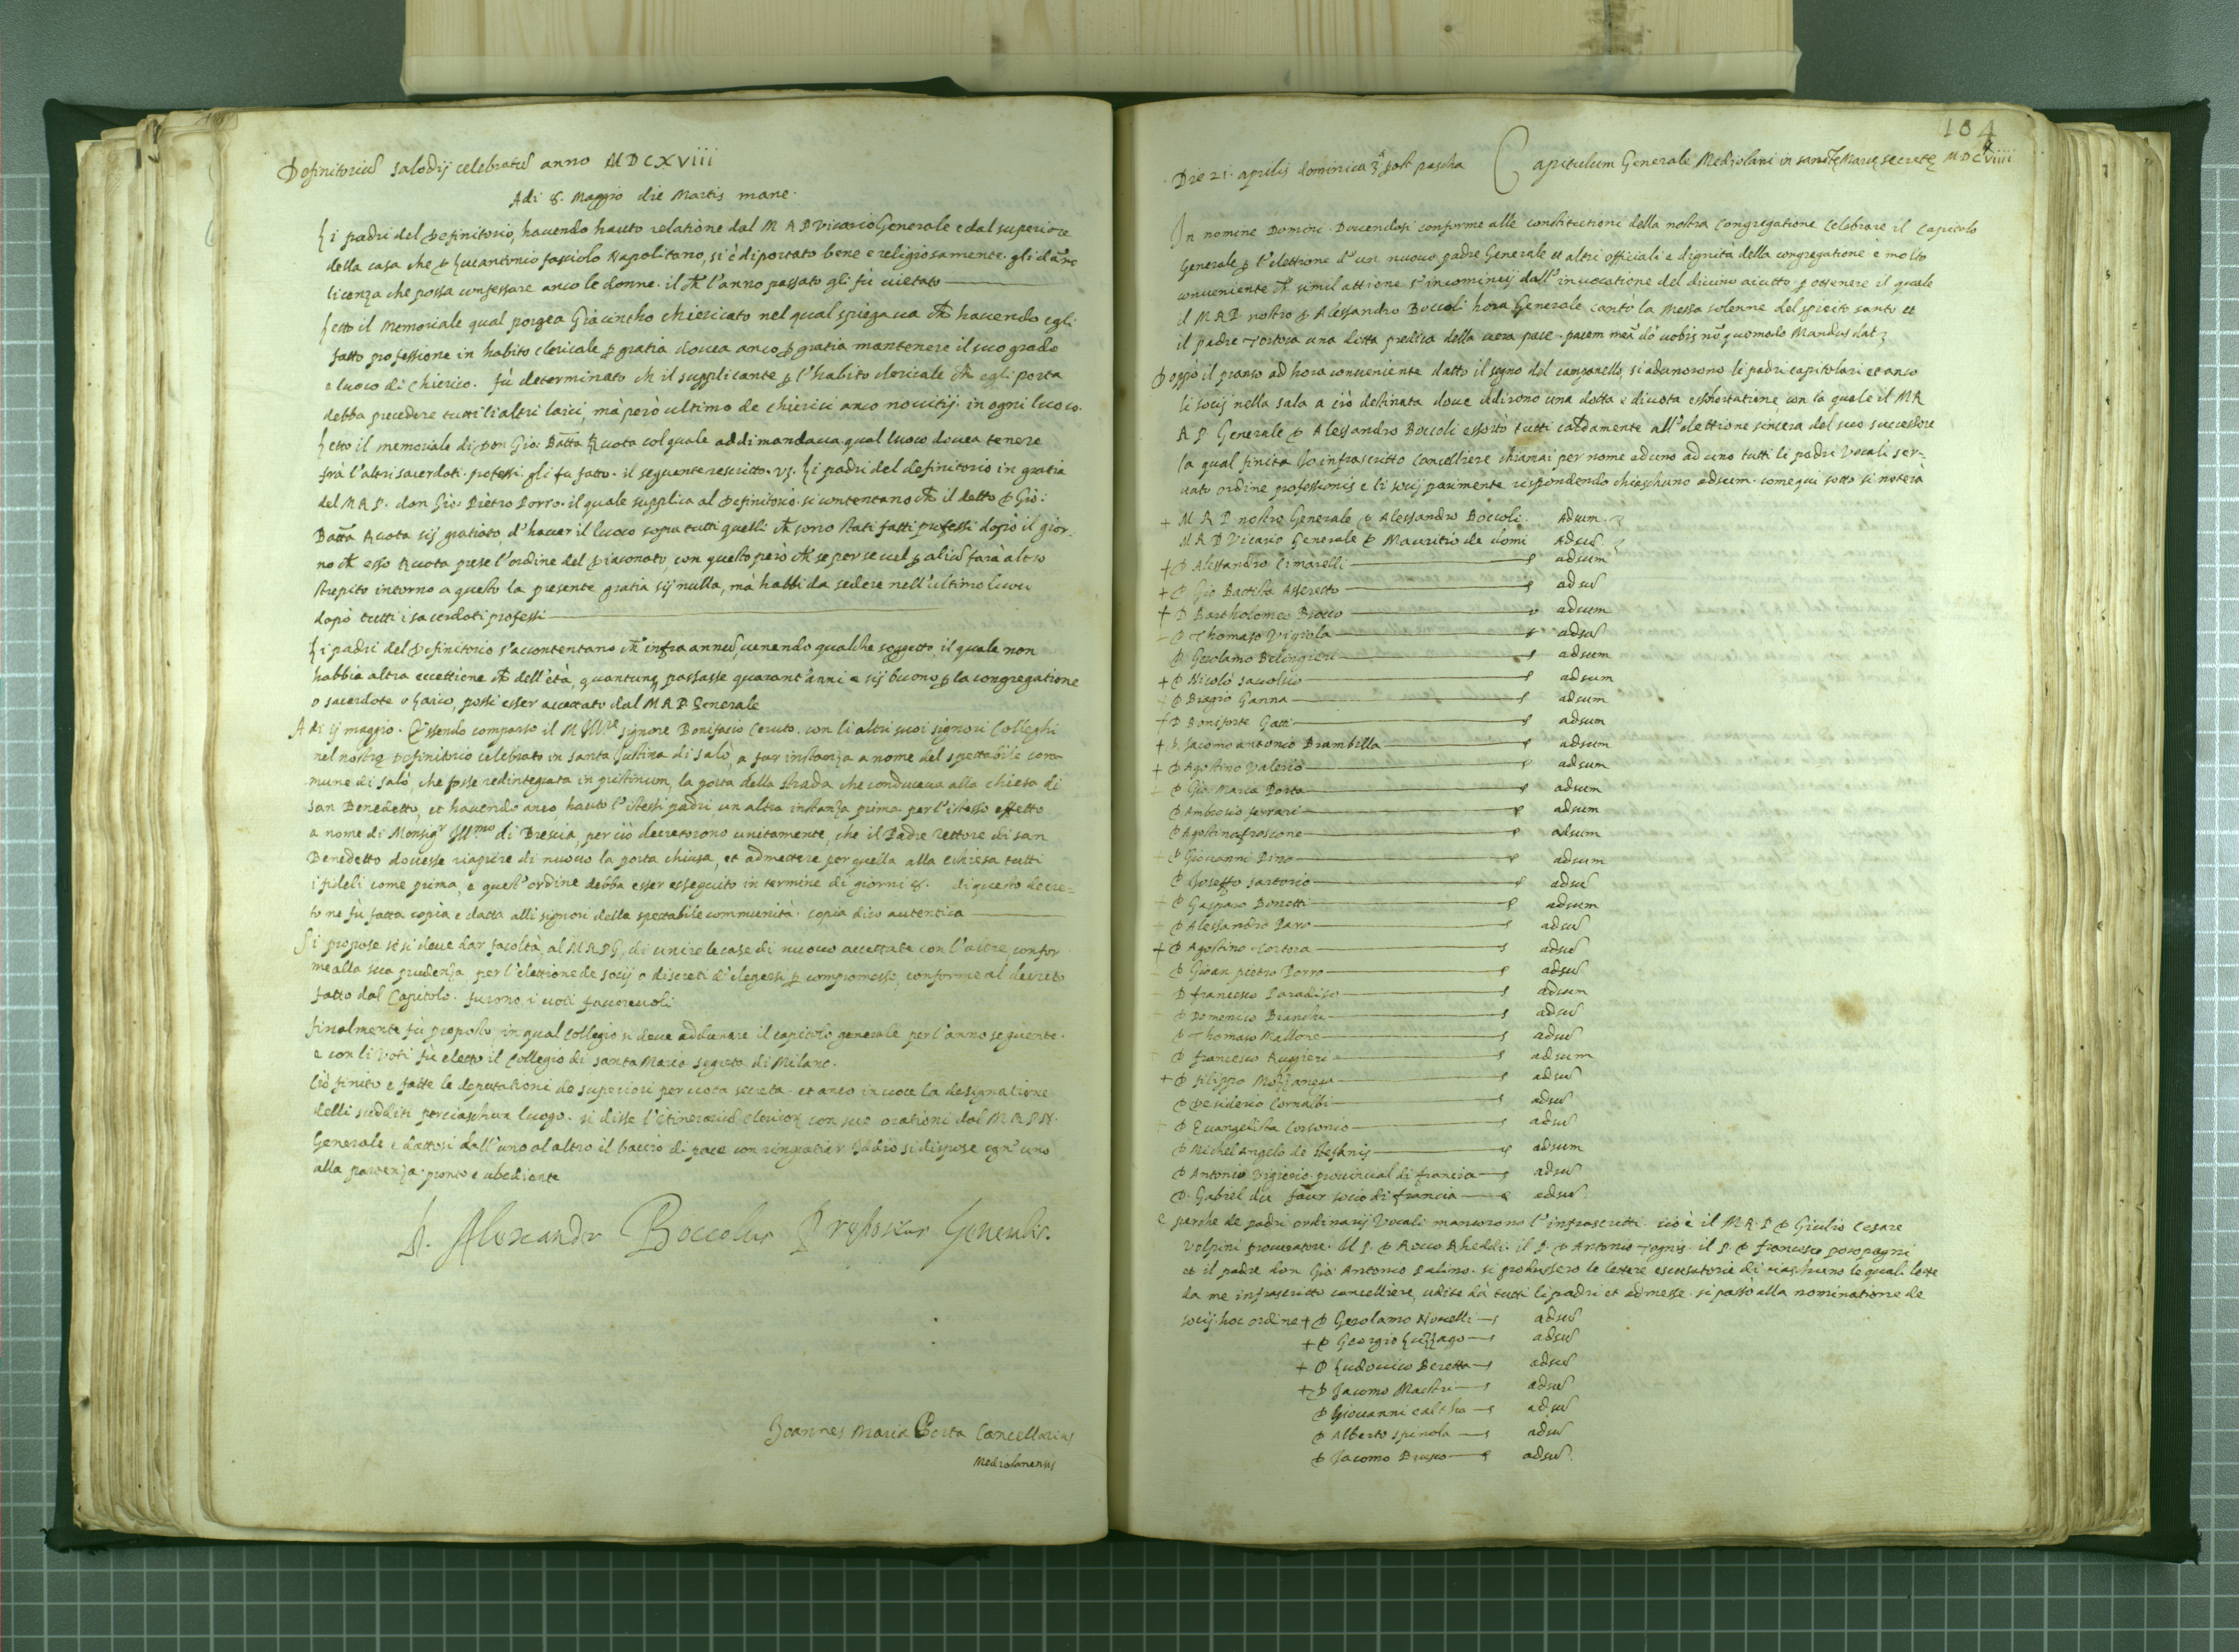 Definitoriũ Salodij celebratũ anno MDCXVIII
Adi 8. Maggio die Martis mane.
Li padri del Definitorio, havendo hauto relatione dal M R P Vicario Generale e dal superiore
della casa che D Lucantonio fasciolo Napolitano, si è diportato bene e religiosamente. gli dāno
licenza che possa confessare anco le donne. il ch̃ l'anno passato gli fù vietato
Letto il Memoriale qual porgea Giacintho Chiericato nel qual spiegava ch̃ havendo egli
fatto professione in habito clericale ꝑ gratia dovea anco ꝑ gratia mantenere il suo grado
e luoco di Chierico. fù determinato ch̃ il supplicante ꝑ l'habito clericale ch̃ egli porta
debba precedere tutti li altri laici, mà però ultimo de Chierici anco novitij in ogni luoco.
Letto il memoriale di Don Gio: Batta Ruota col quale addimandava qual luoco dovea tenere
frà l'altri sacerdoti professi gli fu fatto il seguente rescritto. vz. Li padri del definitorio in gratia
del M R P. don Gio: Pietro Porro. il quale supplica al Definitorio. si contentano ch̃ il detto D Gio:
Batta Ruota sij gratiato, d'haver il luoco sopra tutti quelli ch̃ sono stati fatti professi dopò il gior-
no ch̃ esso Ruota prese l'ordine del Diaconato, con questo però ch̃ se per se vel ꝑ aliũ farà altro
strepito intorno a questo la presente gratia sij nulla, mà habbi da sedere nell'ultimo luoco
dopò tutti i sacerdoti professi
Li padri del Definitorio s'accontentano ch̃ infra annũ, venendo qualche soggetto, il quale non
habbia altra eccettione ch̃ dell'età, quantunq passasse quarant'anni e sij buono ꝑ la congregatione
o sacerdote o laico, possi esser accettato dal M R P Generale
Adi ij maggio. Essendo comparso il M Ill.re signore Bonifacio Ceruto con li altri suoi signori Colleghi
nel nostro Definitorio celebrato in santa Justina di Salò, a far instanza a nome del spettabile com-
mune di Salò, che fosse redintegrata in pristinum, la porta della strada che conduceva alla chiesa di
san Benedetto, et havendo anco, hauto l'istessi padri un altra instanza prima per l'istesso effetto
a nome di Monsig.r Ill.mo di Brescia, perciò decretorono unitamente, che il Padre rettore di san
Benedetto dovesse riaprire di nuovo la porta chiusa, et admettere per quella alla Chiesa tutti
i fideli come prima, e quest'ordine debba esser esseguito in termine di giorni 8. di questo decre-
to ne fù fatta copia e datta alli signori della spettabile communità. copia dico autentica
Si propose se si deve dar facoltà al M R P G. di unire le case di nuovo accettate con l'altre, confor
me alla sua prudenza, per l'elettione de socij o discreti d'elegersi ꝑ compromesso, conforme al decreto
fatto dal Capitolo. furono i voti favorevoli
finalmente fù proposto, in qual Collegio si deve addunare il capitolo generale per l'anno seguente.
e con li voti fù eletto il Collegio di santa Maria segreta di Milano.
Ciò finito e fatte le deputationi de superiori per vota secreta. et anco in voce la designatione
delli sudditi per ciaschun luogo. si disse l'itinerariũ clericoꝝ con sue orationi dal M R P N.
Generale e dattosi dall'uno al altro il baccio di pace con ringratiar Iddio si dispose ogn'uno
alla partenza. pronto e ubediente
D. Alexander Boccolus Præpositus Generalis.
Joannes Maria Porta Cancellarius
Mediolanensis
104
Die 21. aprilis dominica 3ª post pascha Capitulum Generale Mediolani in sanctę Marię secretę MDCXVIIII
In nomine Domini. Dovendosi conforme alle constitutioni della nostra Congregatione Celebrare il Capitolo
Generale ꝑ l'elettione d'un nuovo padre Generale et altri officiali e dignità della congregatione è molto
conveniente ch̃ simil attione s'incominij dall'invocatione del divino aiutto. ꝑ ottenere il quale
il M R P nostro D Alessandro Boccoli hora Generale cantò la Messa solenne del spirito santo et
il padre Tortora una dotta predica della vera pace. pacem meã do vobis nõ quomodo Mundus dat
Doppò il pranso ad hora conveniente datto il segno del campanello, si adunorono li padri capitolari et anco
li socij nella sala a ciò destinata dove udirono una dotta e divota esshortatione con la quale il M R
R P. Generale D Alessandro Boccoli essortò tutti caldamente all'elettione sincera del suo successore
la qual finita Io infrascritto Cancelliere chiamai per nome ad uno ad uno tutti li padri Vocali ser-
vato ordine professionis e li socij parimente rispondendo chiaschuno adsum. come qui sotto si noterà
+ M R P nostro Generale D Alessandro Boccoli. Adsum.
M R P Vicario Generale D Mauritio de Domi Adsũ
+ D Alessandro Cimarelli adsum
+ D Gio Battista Assereto adsũ
+ D Bartholomeo Brocco adsum
D Thomaso Vignola adsũ
D Gerolamo Belingieri adsum
+ D Nicolò Savolico adsum
D Biagio Ganna adsum
+ D Boniforte Gatti adsum
+ D. Jacomo antonio Brambilla adsum
+ D Agostino Valerio adsum
D Gio. Maria Porta adsum
D Ambrosio ferrari adsum
D Agostino froscone adsum
D Giovanni Pino adsum
D Joseffo Sartorio adsũ
D Gasparo Bonetti adsum
D Alessandro Paro adsũ
+ D Agostino Tortora adsũ
D Gioan pietro Porro adsũ
D francesco Paradiso adsum
D Domenico Bianchi adsũ
D Thomaso Mallone adsũ
D francesco Ruggieri adsum
+ D filippo Mozzanega adsũ
D Desiderio Cornalbi adsũ
D Evangelista Corsonio adsũ
D Michel Angelo de stefanis adsum
D Antonio Vigierio. provincial di francia adsũ
D. Gabriel du faur socio di francia adsũ
E perche de padri ordinarij Vocali mancorono l'infrascritti. cioè il M R P D Giulio Cesare
Volpini procuratore. Il P. D Rocco Rheddi. il P. D Antonio Tognis. il P. D francesco poropagni
et il padre don Gio: Antonio Palino. si produssero le lettere escusatorie di ciaschuno le quali lette
da me infrascritto cancelliere, udite dà tutti li padri et admesse. si passò alla nominatione de
socij. hoc ordine + D Gerolamo Novelli adsũ
+ D Georgio Luzzago adsũ
+ D Ludovico Beretta adsũ
+ D Jacomo Maestri adsũ
D Giovanni Calcho adsũ
D Alberto spinola adsũ
D Jacomo Brusco adsũ.